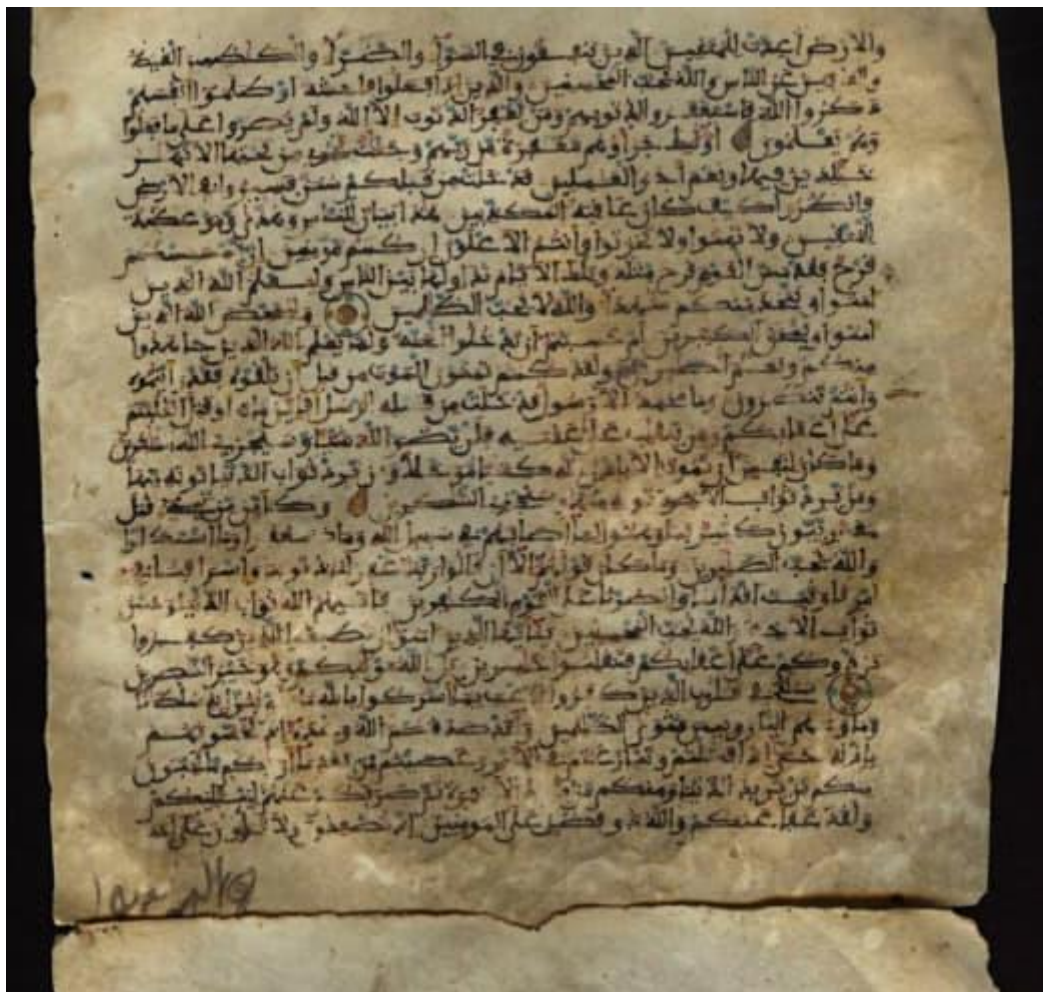 والارض اعدت للمتقين الذين ينفقون في السرا والضرا والكاظمين الغيظ
والعافين عن الناس والله يحب المحسنين والذين اذا فعلوا فاحشة او ظلموا انفسهم
ذكروا الله فاستغفروا لذنوبهم ومن يغفر الذنوب الا الله ولم يصروا على ما فعلوا
وهم يعلمون اولئك جزاوهم مغفرة من ربهم وجنت تجري من تحتها الانهر
خلدين فيها ونعم اجر العملين قد خلت من قبلكم سنن فسيروا في الارض
فانظروا كيف كان عاقبة المكذبين هذا بيان للناس وهدى وموعظة
للمتقين ولا تهنوا ولا تحزنوا وانتم الاعلون ان كنتم مومنين ان يمسسكم
قرح فقد مس القوم قرح مثله وتلك الايام نداولها بين الناس وليعلم الله الذين
امنوا ويتخذ منكم شهدا والله لا يحب الظلمين وليمحص الله الذين
امنوا ويمحق الكفرين ام حسبتم ان تدخلوا الجنة ولما يعلم الله الذين جاهدوا
منكم ويعلم الصبرين ولقد كنتم تمنون الموت من قبل ان تلقوه فقد رايتموه
وانتم تنظرون وما محمد الا رسول قد خلت من قبله الرسل افاين مات او قتل انقلبتم
على اعقابكم ومن ينقلب على عقبيه فلن يضر الله شيا وسيجزي الله الشكرين
وما كان لنفس ان تموت الا باذن الله كتبا موجلا ومن يرد ثواب الدنيا نوته منها
ومن يرد ثواب الاخرة نوته منها وسنجزي الشكرين وكاين من نبي قتل
معه ربيون كثير فما وهنوا لما اصابهم في سبيل الله وما ضعفوا وما استكانوا
والله يحب الصبرين وما كان قولهم الا ان قالوا ربنا اغفر لنا ذنوبنا واسرافنا في
امرنا وثبت اقدامنا وانصرنا على القوم الكفرين فاتيهم الله ثواب الدنيا وحسن
ثواب الاخرة والله يحب المحسنين يايها الذين امنوا ان تطيعوا الذين كفروا
يردوكم على اعقابكم فتنقلبوا خسرين بل الله موليكم وهو خير النصرين
سنلقي في قلوب الذين كفروا الرعب بما اشركوا بالله ما لم ينزل به سلطنا
وماويهم النار وبيس مثوى الظلمين ولقد صدقكم الله وعده اذ تحسونهم
باذنه حتى اذا فشلتم وتنزعتم في الامر وعصيتم من بعد ما اريكم ما تحبون
منكم من يريد الدنيا ومنكم من يريد الاخرة ثم صرفكم عنهم ليبتليكم
ولقد عفا عنكم والله ذو فضل على المومنين اذ تصعدون ولا تلوون على احد